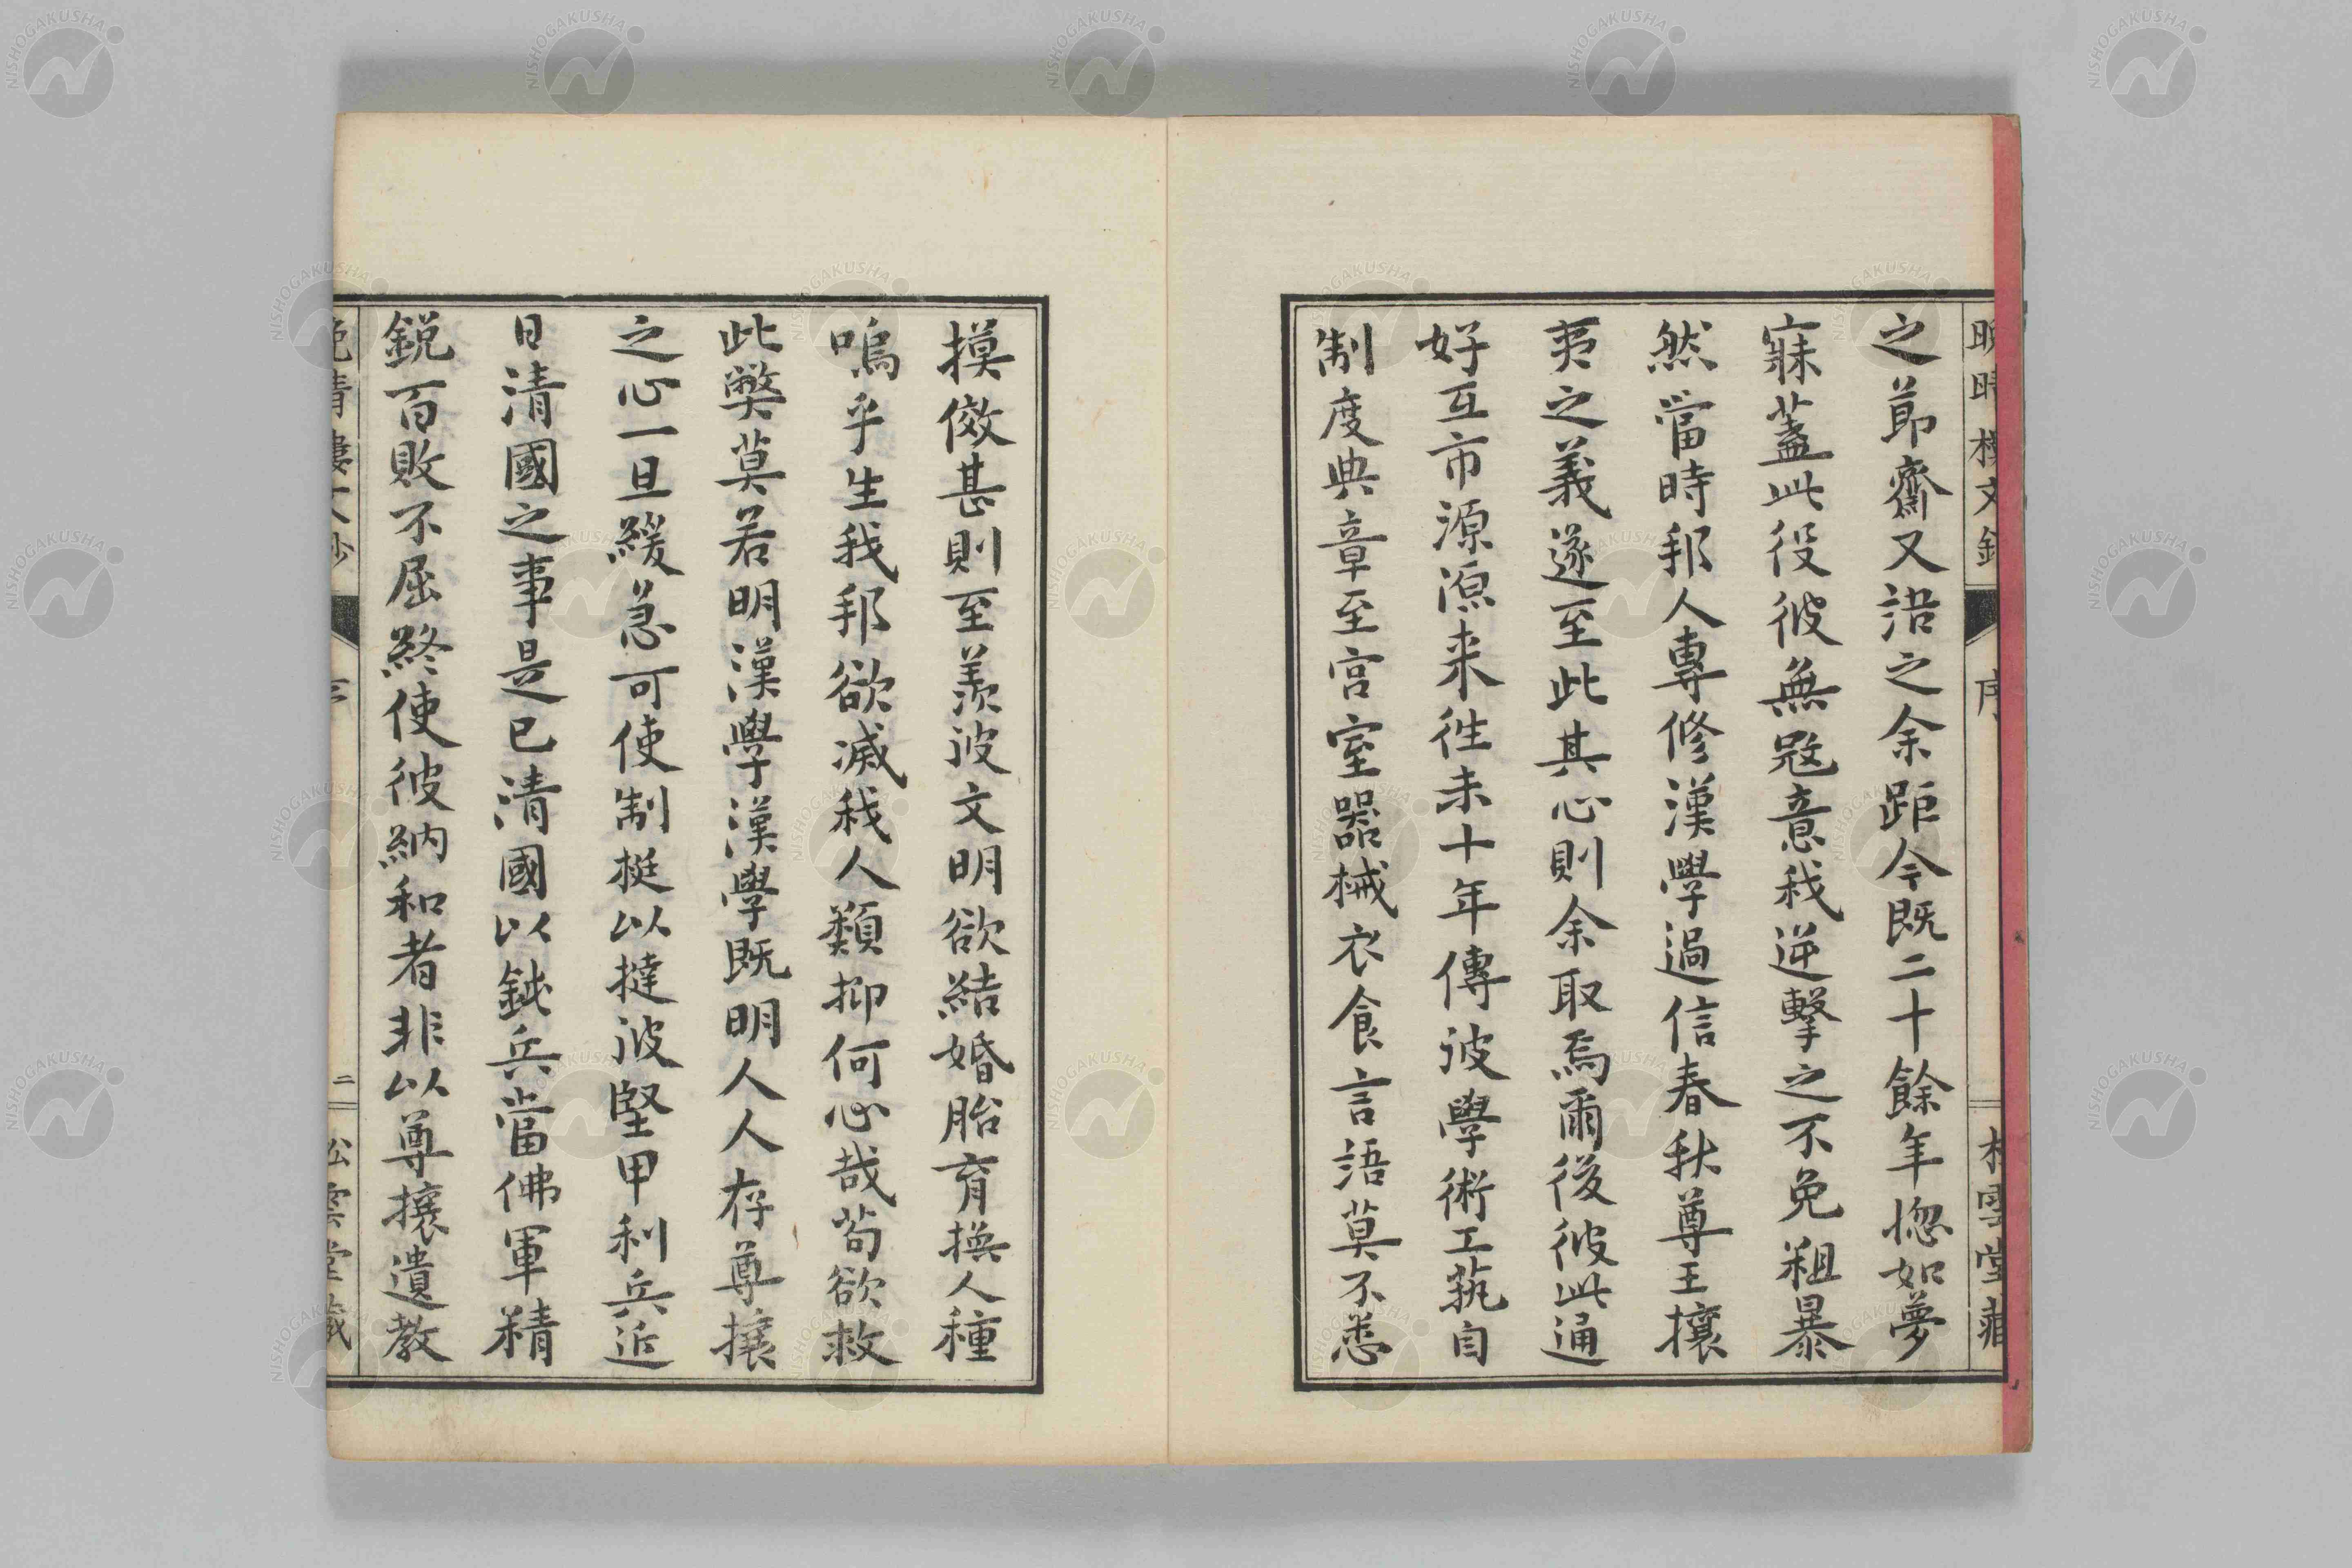 之節齋又語之余距今既二十餘年惚如夢
寐蓋此役彼無寇意我逆擊之不免粗暴
然當時邦人專修漢學過信春秋尊王攘
夷之義遂至此其心則余取焉爾後彼此通
好互市源源来往未十年傳彼學術工藝自
制度典章至宮室器械衣食言語莫不悉
摸倣甚則至羨彼文明欲結婚胎育換人種
嗚乎生我邦欲滅我人類抑何心哉苟欲救
此獘莫若明漢學漢學既明人人存尊攘
之心一旦緩急可使制梃以撻彼堅甲利兵近
日清國之事是已清國以鈍兵當佛軍精
鋭百敗不屈終使彼納和者非以尊攘遺教
晩晴樓文鈔
序
二
松雲堂藏
NISHOGAKUSHA